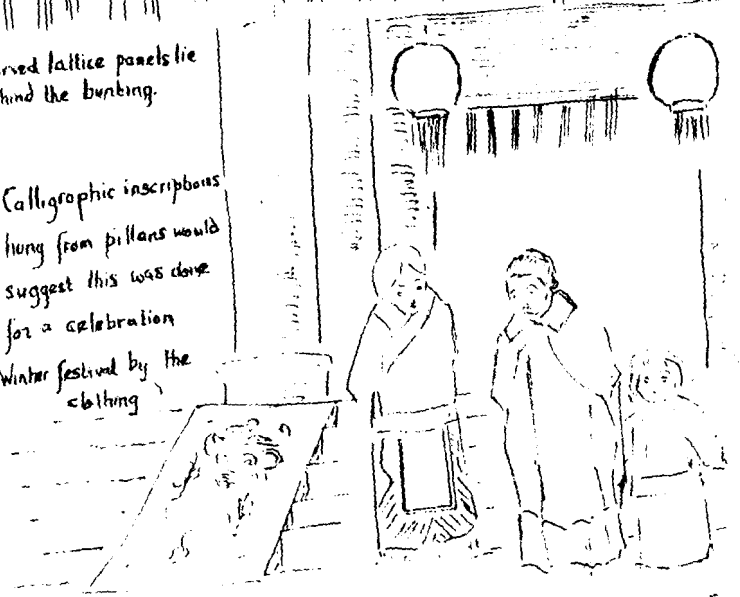 rved lattice panels lie
hind the bunting.
Calligraphic inscriptions
hung from pillars would
suggest this was done
for a celebration
Winter festival by the
clothing